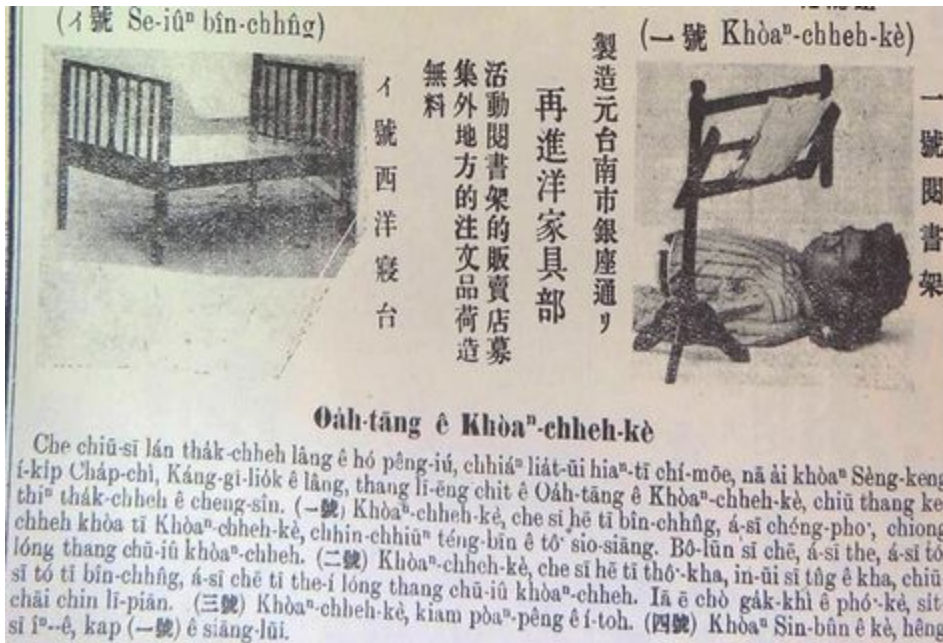 (イ號 Se-iûⁿ bîn-chhn̂g)
(一號 Khòaⁿ-chheh-kè)
一號閱書架
製造元台南市銀座通リ
再進洋家具部
活動閱書架的販賣店募
集外地方的注文品荷造
無料
イ號西洋寢台
Oa̍h-tāng ê Khòaⁿ-chheh-kè
Che chiū-sī lán tha̍k-chheh lâng ê hó pêng-iú, chhiáⁿ lia̍t-ūi hiaⁿ-tī chí-mōe, nā ài khòaⁿ Sèng-keng
í-ki̍p Cha̍p-chì, Káng-gī-lio̍k ê lâng, thang lī-ēng chit ê Oa̍h-tāng ê Khòaⁿ-chheh-kè, chiū thang ke
thiⁿ tha̍k-chheh ê cheng-sîn. (一號) Khòaⁿ-chheh-kè, che sī hē tī bîn-chhn̂g, á-sī chéng-pho·, chiong
chheh khòa tī Khòaⁿ-chheh-kè, chhin-chhiūⁿ téng-bīn ê tô· sio-siāng. Bô-lūn sī chē, á-sī the, á-sī tó
lóng thang chū-iû khòaⁿ-chheh. (二號) Khòaⁿ-chheh-kè, che sī hē tī thô·-kha, in-ūi sī tn̂g ê kha, chiū
sī tó tī bîn-chhn̂g, á-sī chē tī the-í lóng thang chū-iû khòaⁿ-chheh. Iā ē chò ga̍k-khì ê phó·-kè, si̍t-
chāi chin lī-piān. (三號) Khòaⁿ-chheh-kè, kiam pòaⁿ-pêng ê í-toh. (四號) Khòaⁿ Sin-bûn ê kè, hêng
sī îⁿ--ê, kap (一號) ê siāng-lūi.